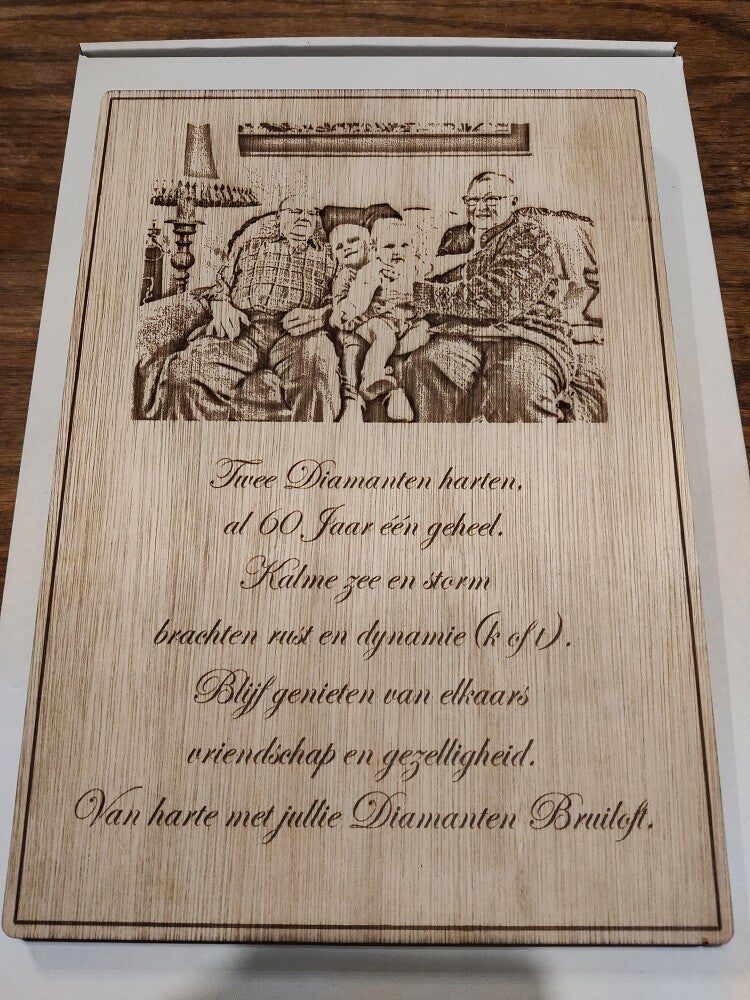 Twee Diamanten harten,
al 60 Jaar één geheel.
Kalme zee en storm
brachten rust en dynamie (k of t).
Blijf genieten van elkaars
vriendschap en gezelligheid.
Van harte met jullie Diamanten Bruiloft.